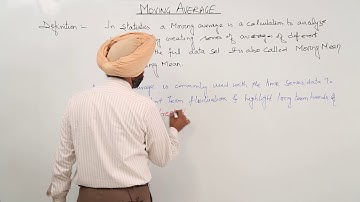 MOVING AVERAGE
Definition :- In Statistics a Moving average is a calculation to analyze
by creating series of averages of different
the full data set. It is also called Moving Mean
Mean.
average is commonly used with the time series data to
term fluctuation & highlight long term trends of